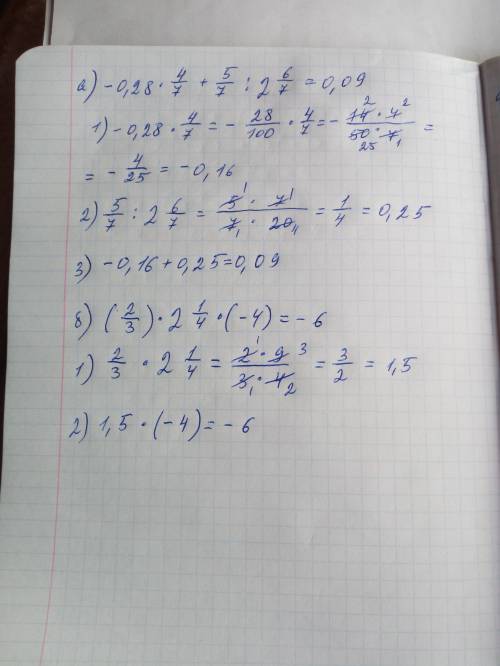 а) -0,28 · 4/7 + 5/7 : 2 6/7 = 0,09
1) -0,28 · 4/7 = - 28/100 · 4/7 = - 14 2 · 4 2 / 50 25 · 7 1 =
= - 4/25 = -0,16
2) 5/7 : 2 6/7 = 5 1 · 7 1 / 7 1 · 20 4 = 1/4 = 0,25
3) -0,16 + 0,25 = 0,09
б) (2/3) · 2 1/4 · (-4) = -6
1) 2/3 · 2 1/4 = 2 1 · 9 3 / 3 1 · 4 2 = 3/2 = 1,5
2) 1,5 · (-4) = -6